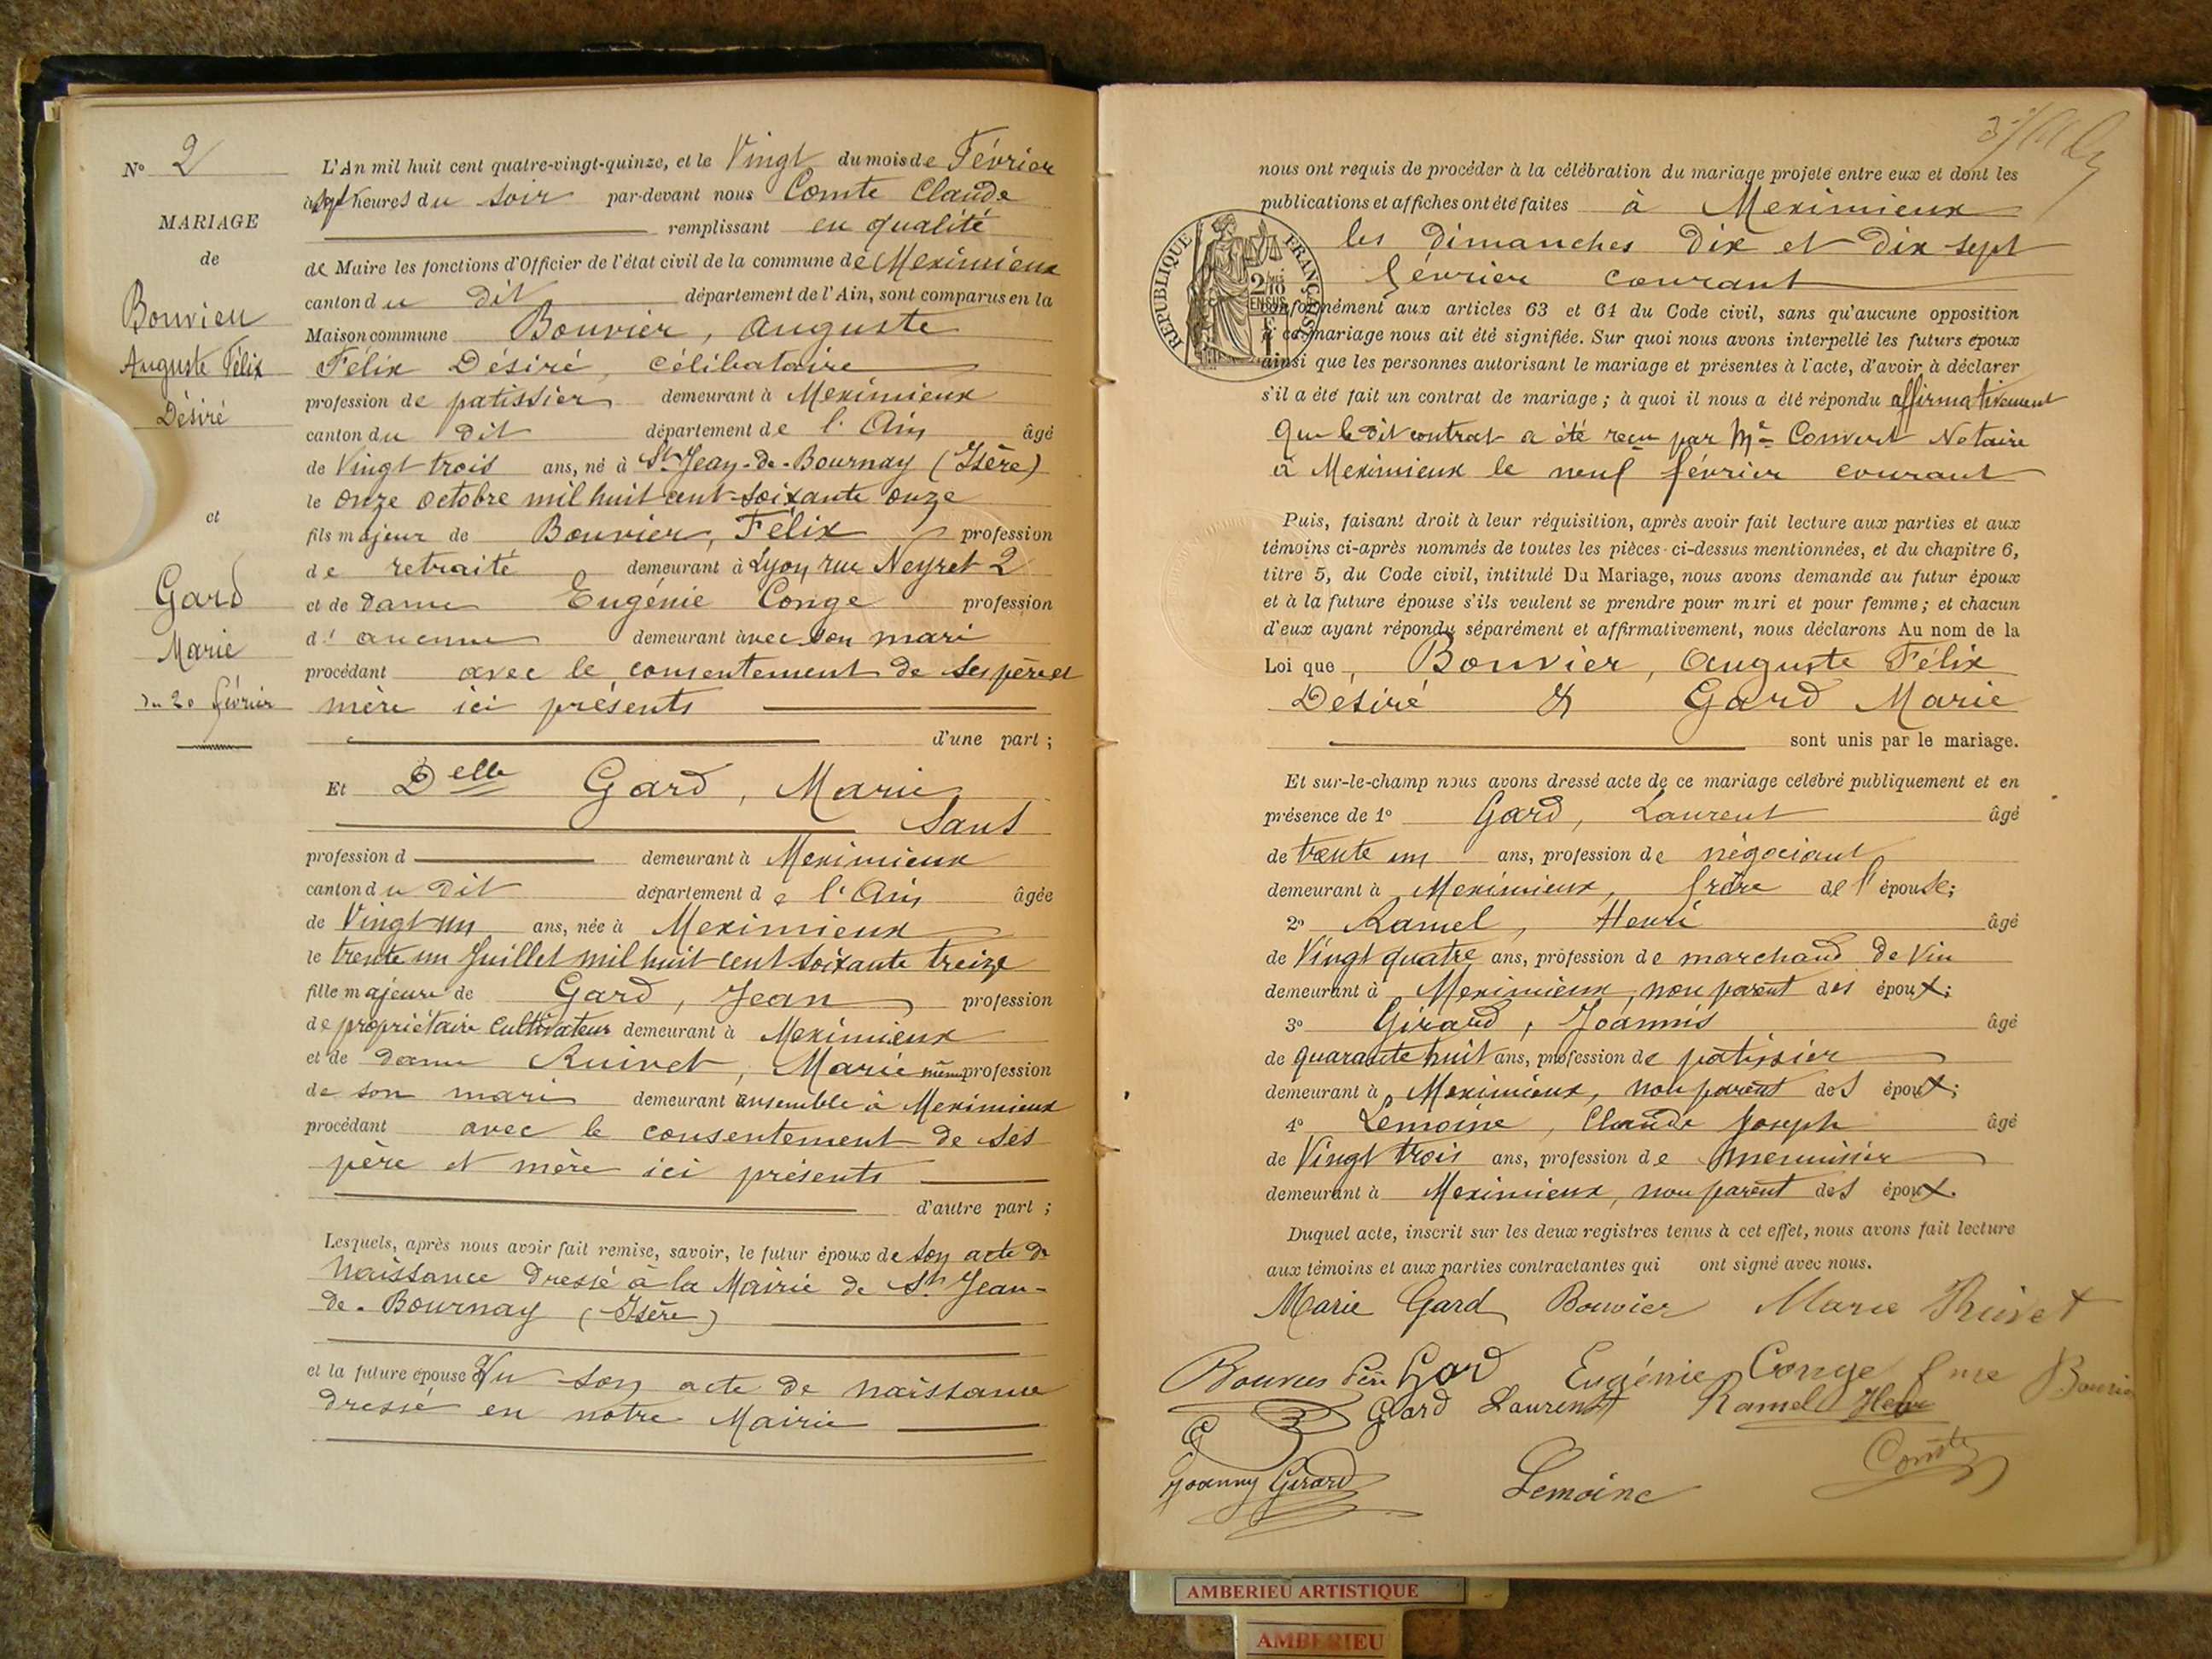 N° 2
MARIAGE
de
Bouvier
Auguste Félix
Désiré
et
Gard
Marie
du 20 février
L'An mil huit cent quatre-vingt-quinze, et le Vingt du mois de Février
à sept heures du soir par-devant nous Comte Claude
remplissant en qualité
de Maire les fonctions d'Officier de l'état civil de la commune de Meximieux
canton du dit département de l'Ain, sont comparus en la
Maison commune Bouvier, Auguste
Félix Désiré, célibataire
profession de patissier demeurant à Meximieux
canton du dit département de l'Ain âgé
de Vingt trois ans, né à St Jean-de-Bournay (Isère)
le onze octobre mil huit cent soixante onze
fils majeur de Bouvier, Félix profession
de retraité demeurant à Lyon rue Neyret 2
et de dame Eugénie Conge profession
d'aucune demeurant avec son mari
procédant avec le consentement de ses père et
mère ici présents
d'une part ;
Et Delle Gard, Marie
Sans
profession d demeurant à Meximieux
canton du dit département de l'Ain âgée
de Vingt un ans, née à Meximieux
le trente un Juillet mil huit cent soixante treize
fille majeure de Gard, Jean profession
de propriétaire cultivateur demeurant à Meximieux
et de dame Ruivet, Marie même profession
de son mari demeurant ensemble à Meximieux
procédant avec le consentement de ses
père et mère ici présents
d'autre part ;
Lesquels, après nous avoir fait remise, savoir, le futur époux de son acte de
Naissance dressé à la Mairie de St Jean-
de-Bournay (Isère)
et la future épouse Vu son acte de naissance
dressé en notre Mairie
nous ont requis de procéder à la célébration du mariage projeté entre eux et dont les
publications et affiches ont été faites à Meximieux
les dimanches dix et dix sept
février courant
RÉPUBLIQUE FRANÇAISE
conformément aux articles 63 et 64 du Code civil, sans qu'aucune opposition
à ce mariage nous ait été signifiée. Sur quoi nous avons interpellé les futurs époux
ainsi que les personnes autorisant le mariage et présentes à l'acte, d'avoir à déclarer
s'il a été fait un contrat de mariage ; à quoi il nous a été répondu affirmativement
que le dit contrat a été reçu par Me Convert Notaire
à Meximieux le neuf février courant
Puis, faisant droit à leur réquisition, après avoir fait lecture aux parties et aux
témoins ci-après nommés de toutes les pièces ci-dessus mentionnées, et du chapitre 6,
titre 5, du Code civil, intitulé Du Mariage, nous avons demandé au futur époux
et à la future épouse s'ils veulent se prendre pour mari et pour femme ; et chacun
d'eux ayant répondu séparément et affirmativement, nous déclarons Au nom de la
Loi que, Bouvier, Auguste Félix
Désiré & Gard Marie
sont unis par le mariage.
Et sur-le-champ nous avons dressé acte de ce mariage célébré publiquement et en
présence de 1° Gard, Laurent âgé
de trente un ans, profession de négociant
demeurant à Meximieux, frère de l'épouse;
2° Ramel, Henri âgé
de Vingt quatre ans, profession de marchand de vin
demeurant à Meximieux, non parent des époux;
3° Girard, Joannis âgé
de quarante huit ans, profession de patissier
demeurant à Meximieux, non parent des époux;
4° Lemoine, Claude Joseph âgé
de Vingt trois ans, profession de menuisier
demeurant à Meximieux, non parent des époux.
Duquel acte, inscrit sur les deux registres tenus à cet effet, nous avons fait lecture
aux témoins et aux parties contractantes qui ont signé avec nous.
Marie Gard Bouvier Marie Ruivet
Bouvier Père Gard Eugénie Conge fme Bouvier
Gard Laurent Ramel Henri
Joanny Girard Lemoine Comte
AMBERIEU ARTISTIQUE
AMBERIEU